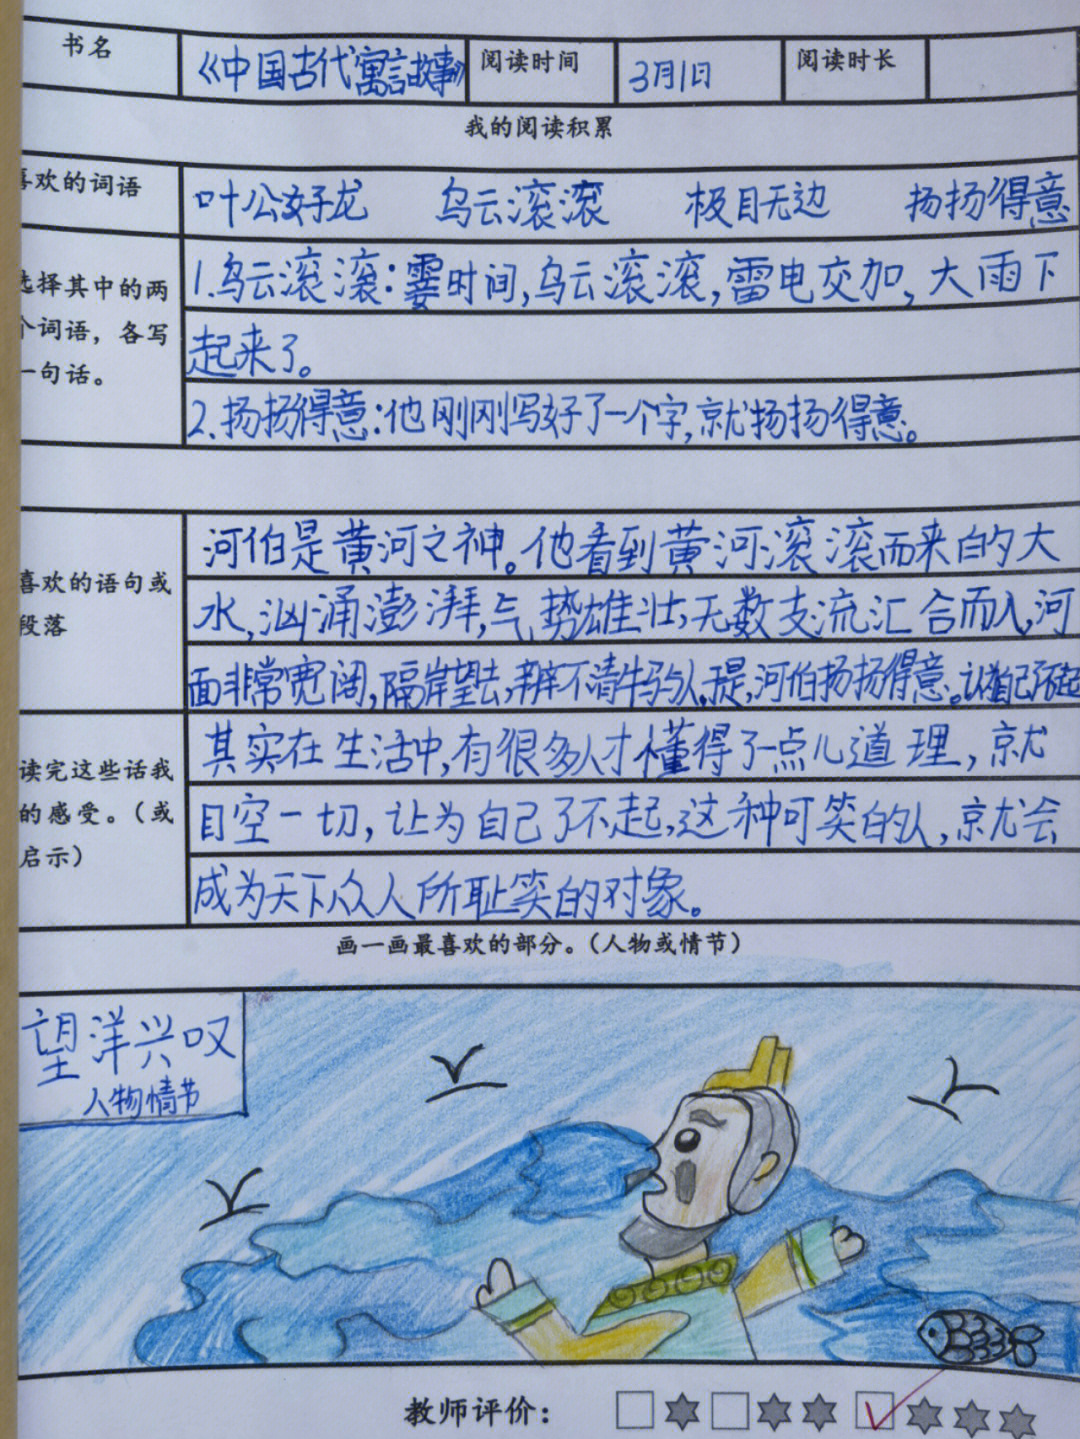 书名 《中国古代寓言故事》 阅读时间 3月1日 阅读时长
我的阅读积累
喜欢的词语 叶公好龙 乌云滚滚 极目无边 扬扬得意
选择其中的两
个词语，各写
一句话。
1.乌云滚滚：霎时间，乌云滚滚，雷电交加，大雨下
起来了。
2.扬扬得意：他刚刚写好了一个字，就扬扬得意。
喜欢的语句或
段落
河伯是黄河之神。他看到黄河滚滚而来的大
水，汹涌澎湃，气势雄壮，无数支流汇合而入，河
面非常宽阔，隔岸望去，辨不清牛马，提，河伯扬扬得意。认为自己了不起
读完这些话我
的感受。（或
启示）
其实在生活中，有很多人才懂得了一点儿道理，就
目空一切，让为自己了不起，这种可笑的人，就会
成为天下众人所耻笑的对象。
画一画最喜欢的部分。（人物或情节）
望洋兴叹
人物情节
教师评价：